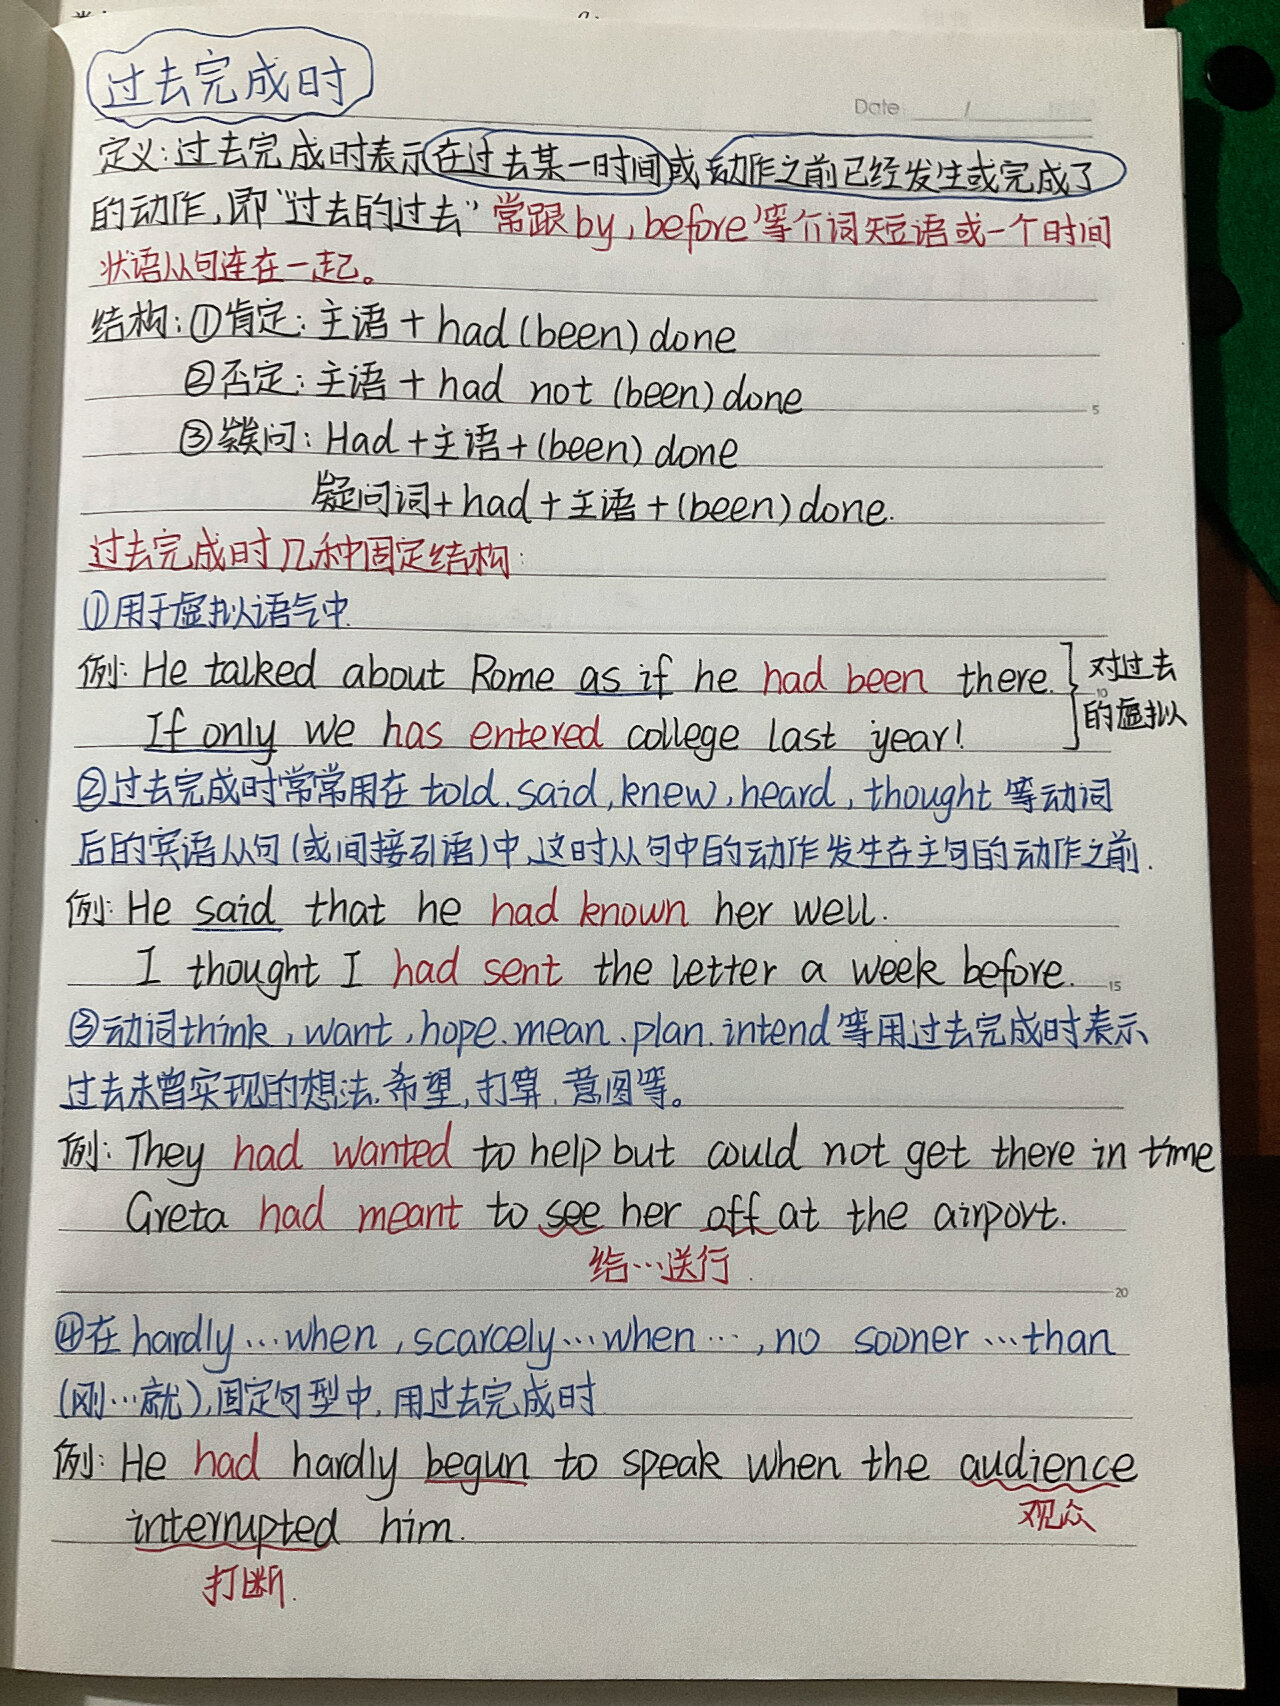 过去完成时
Date /
定义:过去完成时表示在过去某一时间或动作之前已经发生或完成了
的动作,即"过去的过去"常跟by,before等介词短语或一个时间
状语从句连在一起。
结构:①肯定:主语+had(been)done
②否定:主语+had not (been)done
5
③疑问:Had+主语+(been)done
疑问词+had+主语+(been)done.
过去完成时几种固定结构:
①用于虚拟语气中.
例:He talked about Rome as if he had been there. 对过去
10
If only we has entered college last year! 的虚拟
②过去完成时常常用在told.said,knew,heard,thought等动词
后的宾语从句(或间接引语)中,这时从句中的动作发生在主句的动作之前.
例:He said that he had known her well.
I thought I had sent the letter a week before.
15
③动词think,want,hope.mean.plan.intend等用过去完成时表示
过去未曾实现的想法.希望,打算.意图等。
例:They had wanted to help but could not get there in time
Greta had meant to see her off at the airport.
给…送行.
20
④在hardly…when,scarcely…when…,no sooner…than
(刚…就),固定句型中,用过去完成时
例:He had hardly begun to speak when the audience
观众
interrupted him.
打断.